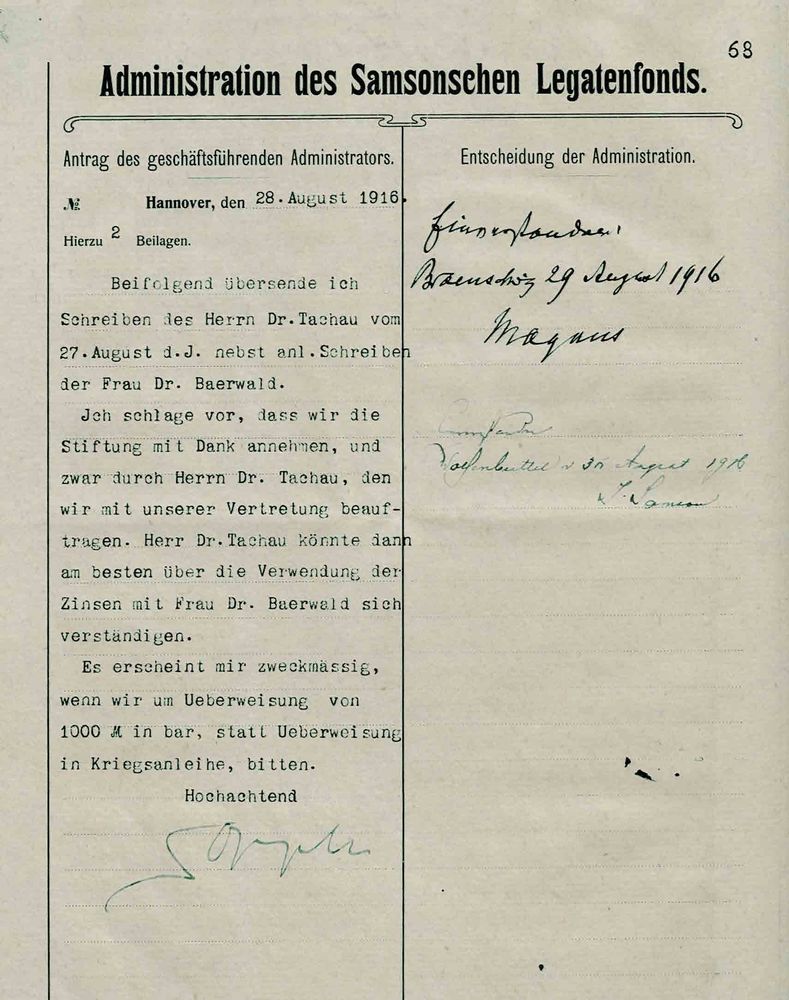 68
Administration des Samsonschen Legatenfonds.
Antrag des geschäftsführenden Administrators.
№
Hannover, den 28. August 1916.
Hierzu 2 Beilagen.
Beifolgend übersende ich
Schreiben des Herrn Dr. Tachau vom
27. August d.J. nebst anl. Schreiben
der Frau Dr. Baerwald.
Jch schlage vor, dass wir die
Stiftung mit Dank annehmen, und
zwar durch Herrn Dr. Tachau, den
wir mit unserer Vertretung beauf-
tragen. Herr Dr. Tachau könnte dann
am besten über die Verwendung der
Zinsen mit Frau Dr. Baerwald sich
verständigen.
Es erscheint mir zweckmässig,
wenn wir um Ueberweisung von
1000 M in bar, statt Ueberweisung
in Kriegsanleihe, bitten.
Hochachtend
Entscheidung der Administration.
Einverstanden!
Braunschwg 29 August 1916
Magnus
Wolfenbüttel d 30 August 1916